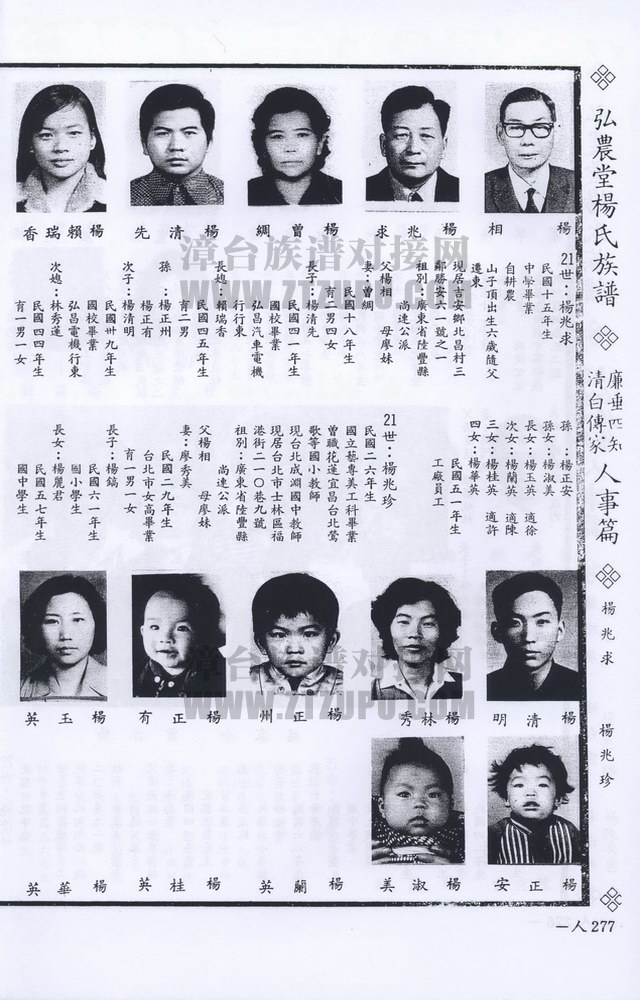 弘農堂楊氏族譜
廉垂四知
清白傳家
人事篇
楊兆求
楊兆珍
一人277
楊 相
楊兆求
楊曾綢
楊清先
楊賴瑞香
21世：楊兆求
民國十五年生
中學畢業
自耕農
山子頂出生六歲隨父
遷東
現居吉安鄉北昌村三
鄰勝安六一號之一
祖別：廣東省陸豐縣
尚連公派
父楊相 母廖妹
妻：曾綢
民國十八年生
育二男四女
長子：楊清先
民國四一年生
國校畢業
弘昌汽車電機
行行東
長媳：賴瑞香
民國四五年生
育二男
孫：楊正州
楊正有
次子：楊清明
民國卅九年生
國校畢業
弘昌電機行東
次媳：林秀蓮
民國四四年生
育一男一女
孫：楊正安
孫女：楊淑美
長女：楊玉英 適徐
次女：楊蘭英 適陳
三女：楊桂英 適許
四女：楊華英
民國五一年生
工廠員工
21世：楊兆珍
民國二六年生
國立藝專美工科畢業
曾職花蓮宜昌台北鶯
歌等國小教師
現台北成淵國中教師
現居台北市士林區福
港街二一〇巷九號
祖別：廣東省陸豐縣
尚連公派
父楊相 母廖妹
妻：廖秀美
民國二九年生
台北市女高畢業
育一男一女
長子：楊鎬
民國六一年生
國小學生
長女：楊麗君
民國五七年生
國中學生
楊清明
楊林秀
楊正州
楊正有
楊玉英
楊正安
楊淑美
楊蘭英
楊桂英
楊華英
漳台族谱对接网
WWW.ZTZUPU.COM
漳台族谱对接网
WWW.ZTZUPU.COM